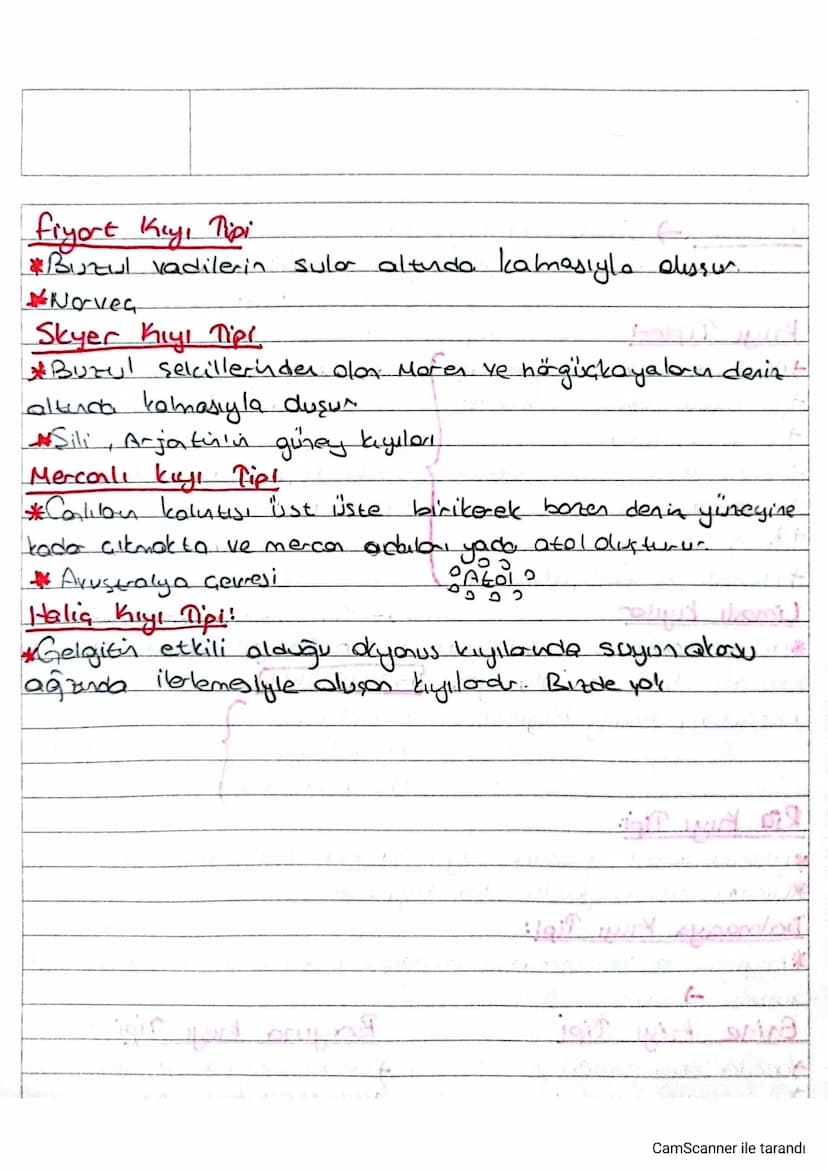 Fiyort Kıyı Tipi
*Buzul vadilerin sular altında kalmasıyla oluşur.
*Norveç
Skyer Kıyı Tipi
*Buzul şekillerinden olan Moren ve hörgüçkayaların deniz
altında kalmasıyla oluşur
*Şili, Arjatinin güney kıyıları
Mercanlı kıyı Tipi
*Canlıları kalıntısı üst üste birikerek bazen deniz yüzeyine
kadar çıkmakta ve mercan adaları yada atol oluşturur.
Atol
* Avustralya Çevresi
Haliç Kıyı Tipi:
*Gelgitin etkili olduğu okyanus kıyılarında suyun akarsu
ağzında ilerlemesiyle oluşan kıyılardır. Bizde yok
CamScanner ile tarandı